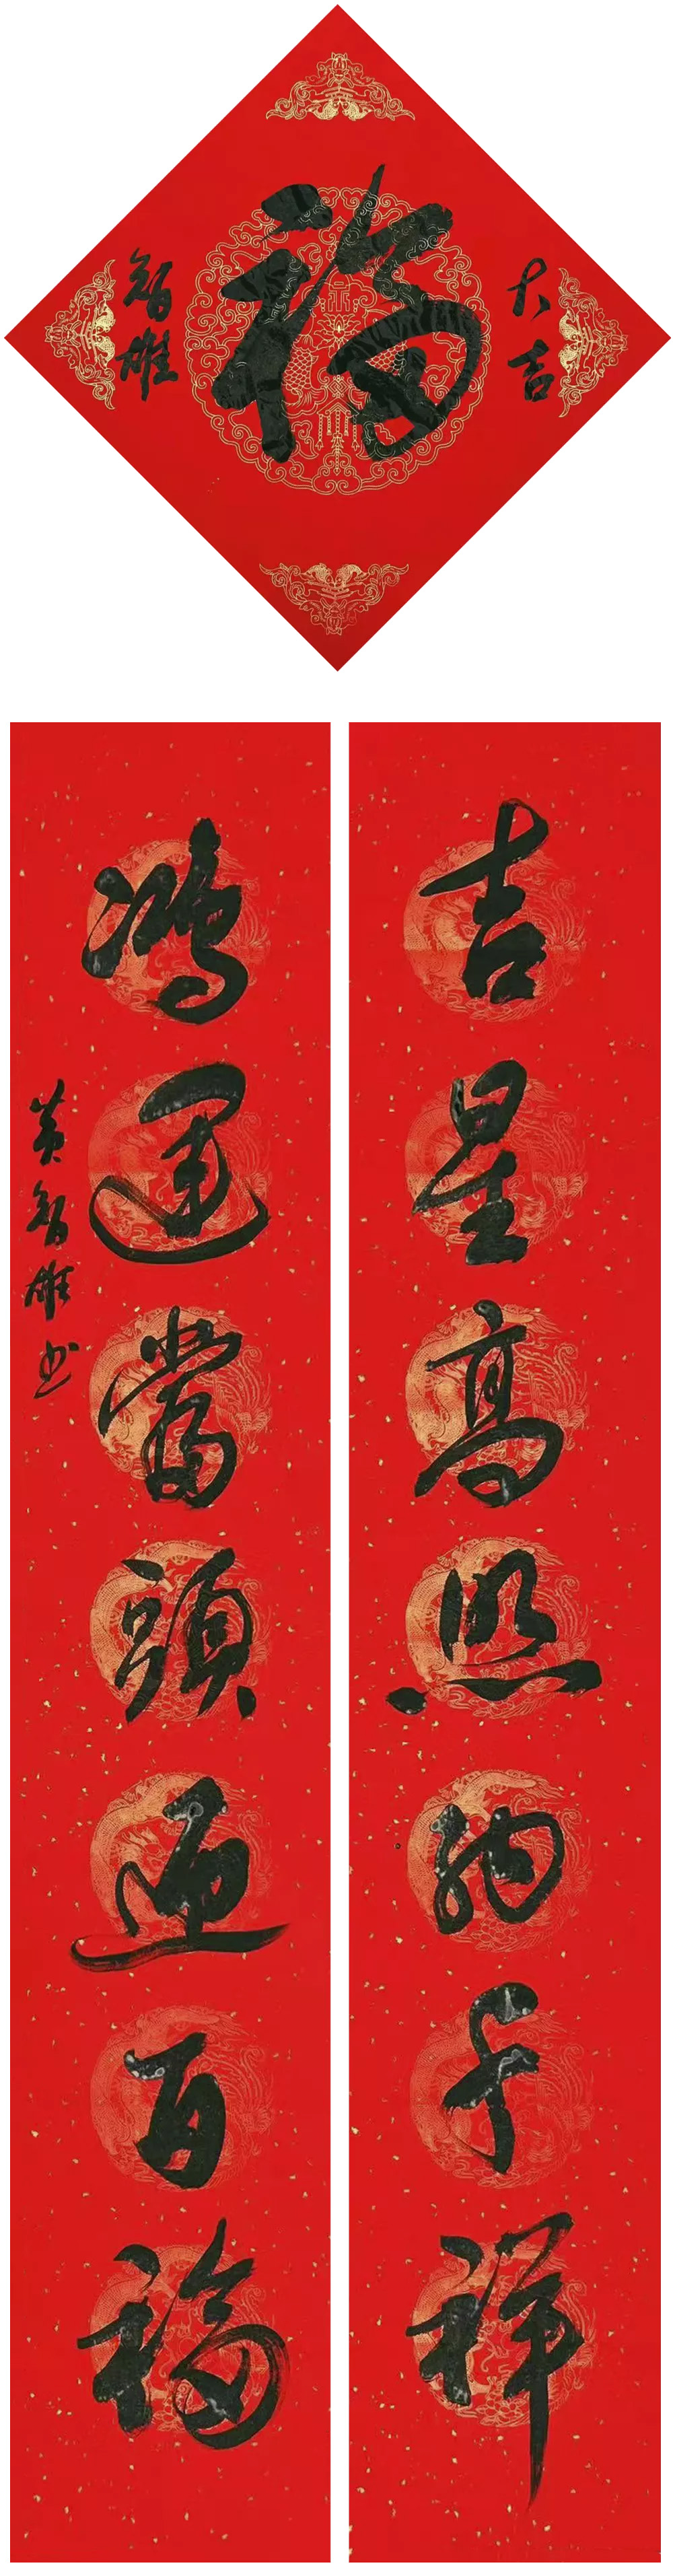 大吉
福
智雄
吉星高照納千祥
鸿運當頭迎百福
黄智雄书